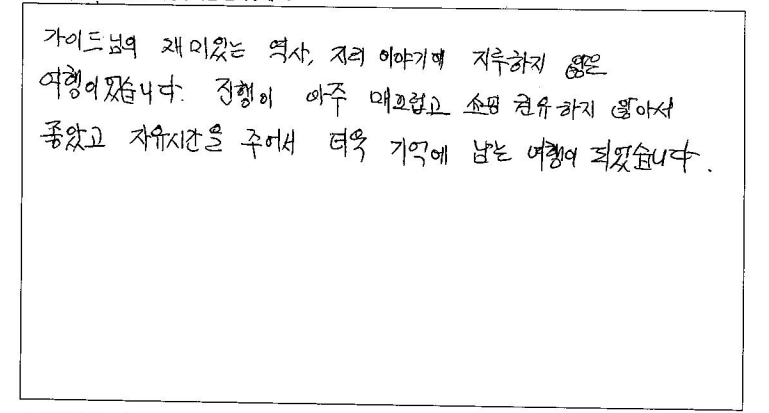 가이드님의 재미있는 역사, 지리 이야기에 지루하지 않은
여행이었습니다. 진행이 아주 매끄럽고 쇼핑 권유하지 않아서
좋았고 자유시간을 주어서 더욱 기억에 남는 여행이 되었습니다.